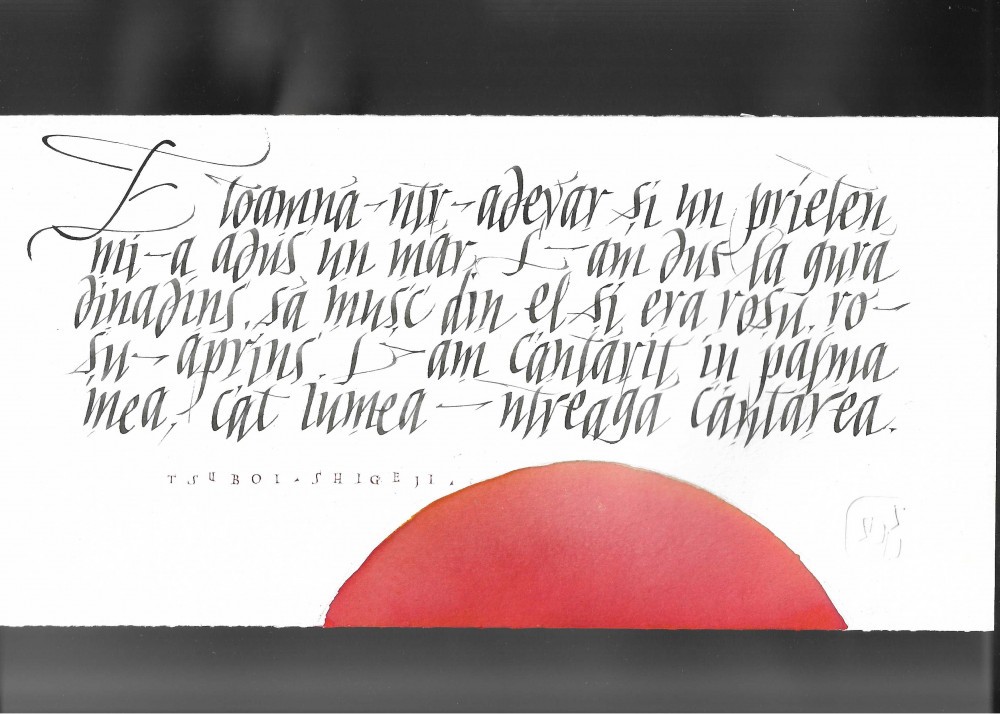 E toamnă-ntr-adevăr și un prieten
mi-a adus un măr. L-am dus la gură
dinadins, să mușc din el și era roșu, ro-
șu-aprins. L-am cântărit în palma
mea, cât lumea-ntreagă cântărea.
TSUBOI-SHIGEJI.